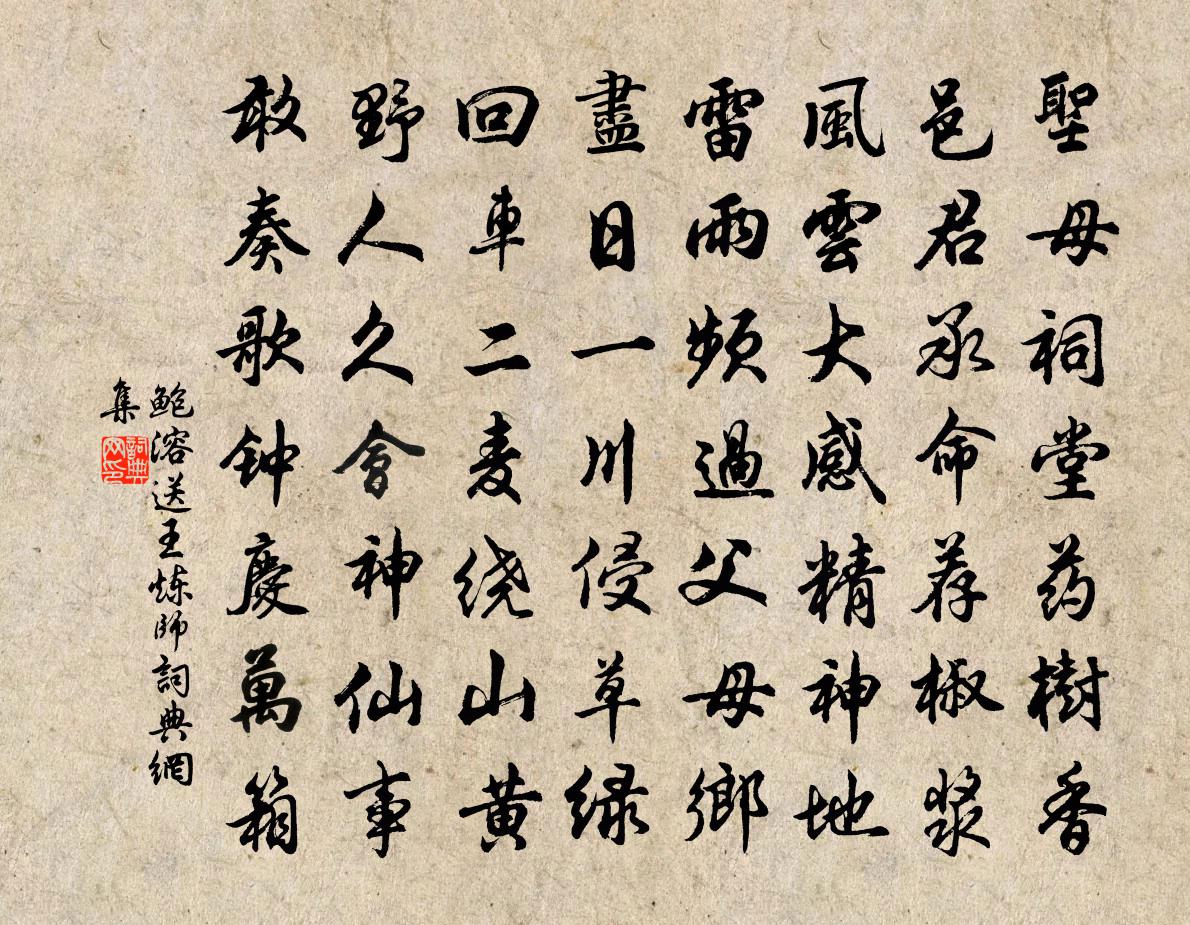 聖母祠堂药樹香
邑君承命荐椒漿
風雲大感精神地
雷雨頻過父母鄉
盡日一川侵草绿
回車二麦绕山黄
野人久會神仙事
敢奏歌钟慶萬箱
鮑溶送王炼師詞典網
集
詞典
网印